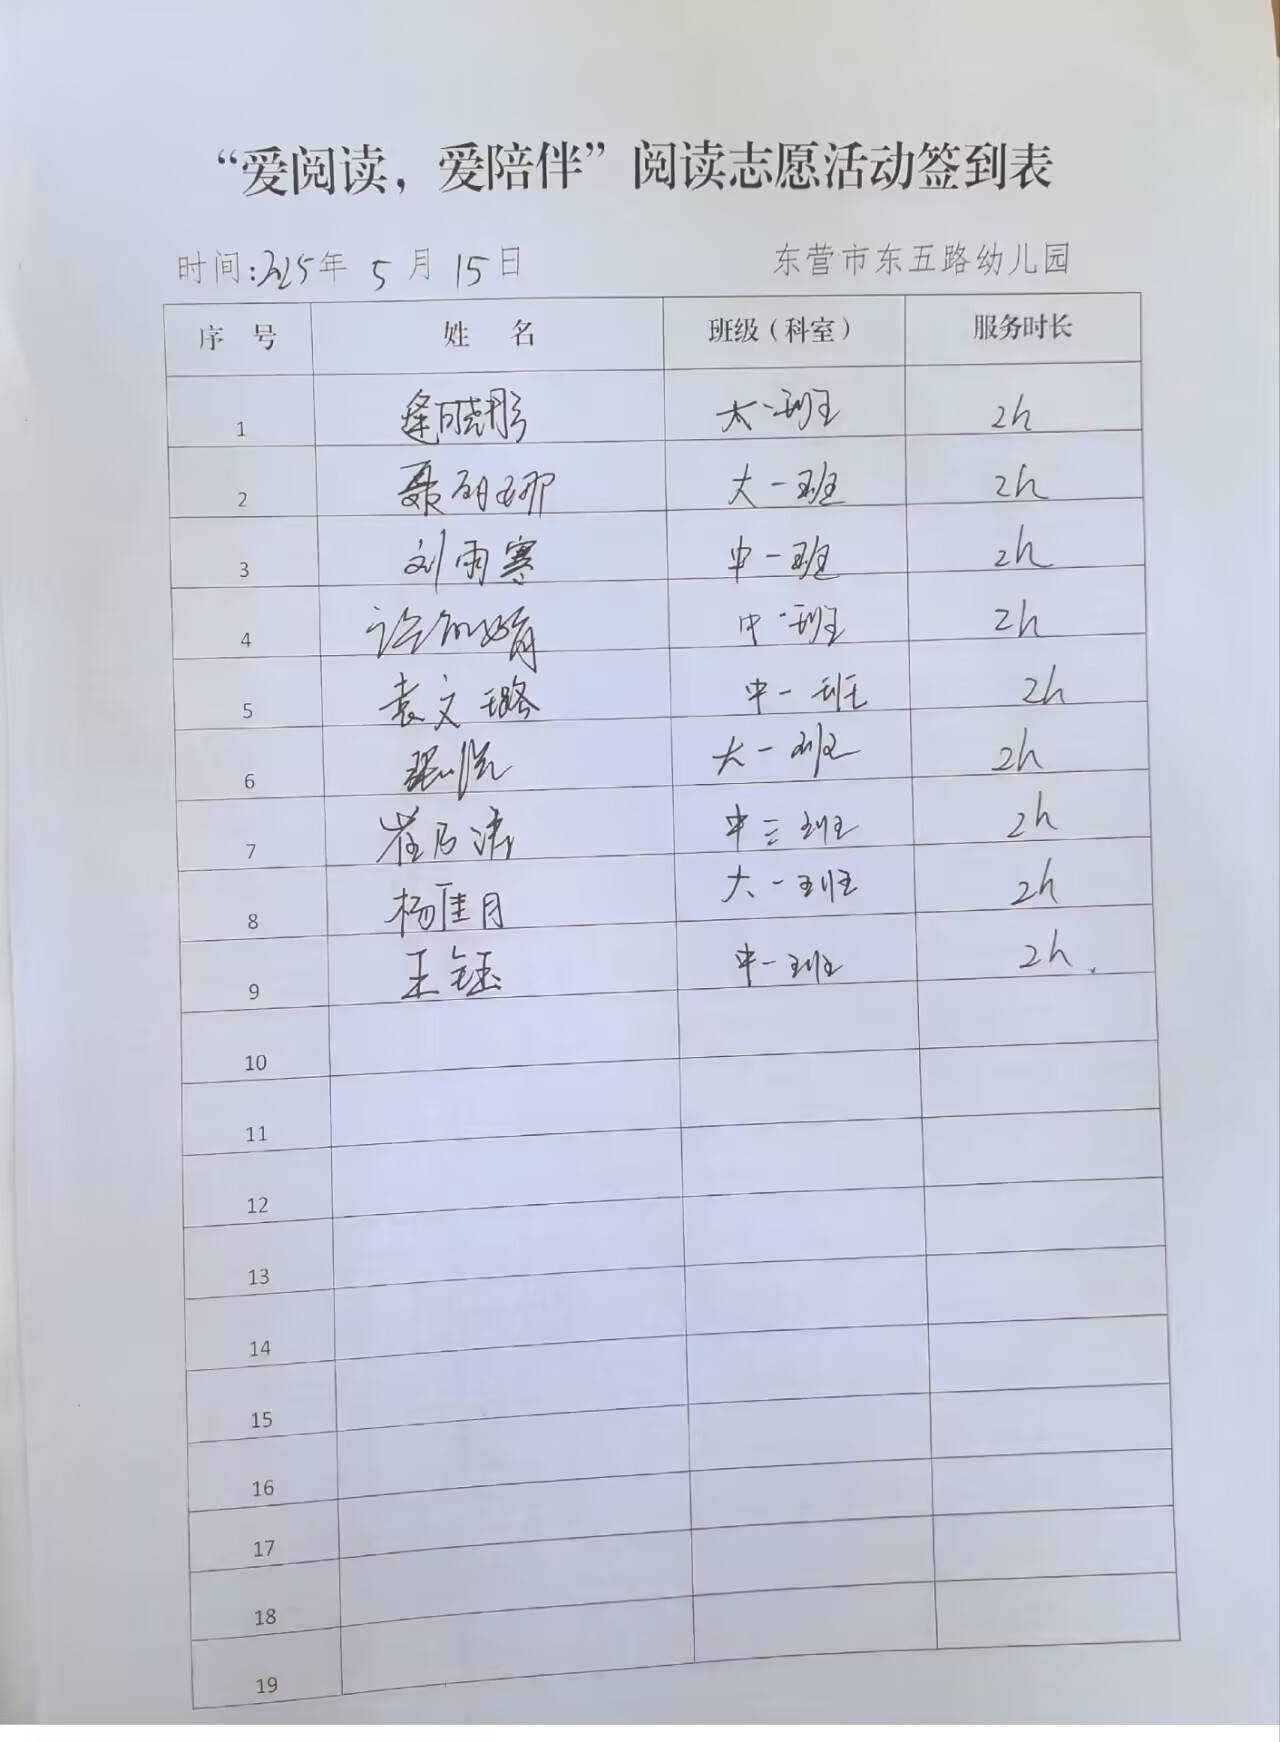 “爱阅读，爱陪伴”阅读志愿活动签到表
时间:2025年 5 月 15日 东营市东五路幼儿园
序 号 姓 名 班级（科室） 服务时长
1 逄晓彤 大一班 2h
2 聂朋娜 大一班 2h
3 刘雨寒 中一班 2h
4 中一班 2h
5 袁文璐 中一班 2h
6 大一班 2h
7 中三班 2h
8 杨佳月 大一班 2h
9 王钰 中一班 2h.
10
11
12
13
14
15
16
17
18
19